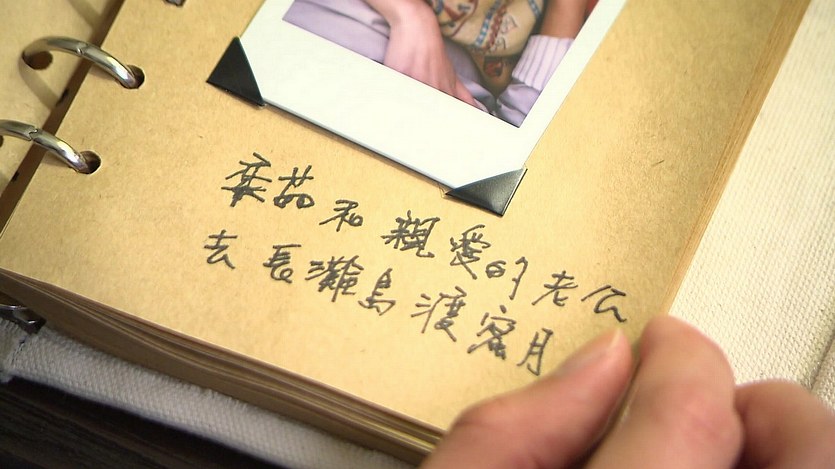 奕茹和親愛的老公
去長灘島渡蜜月